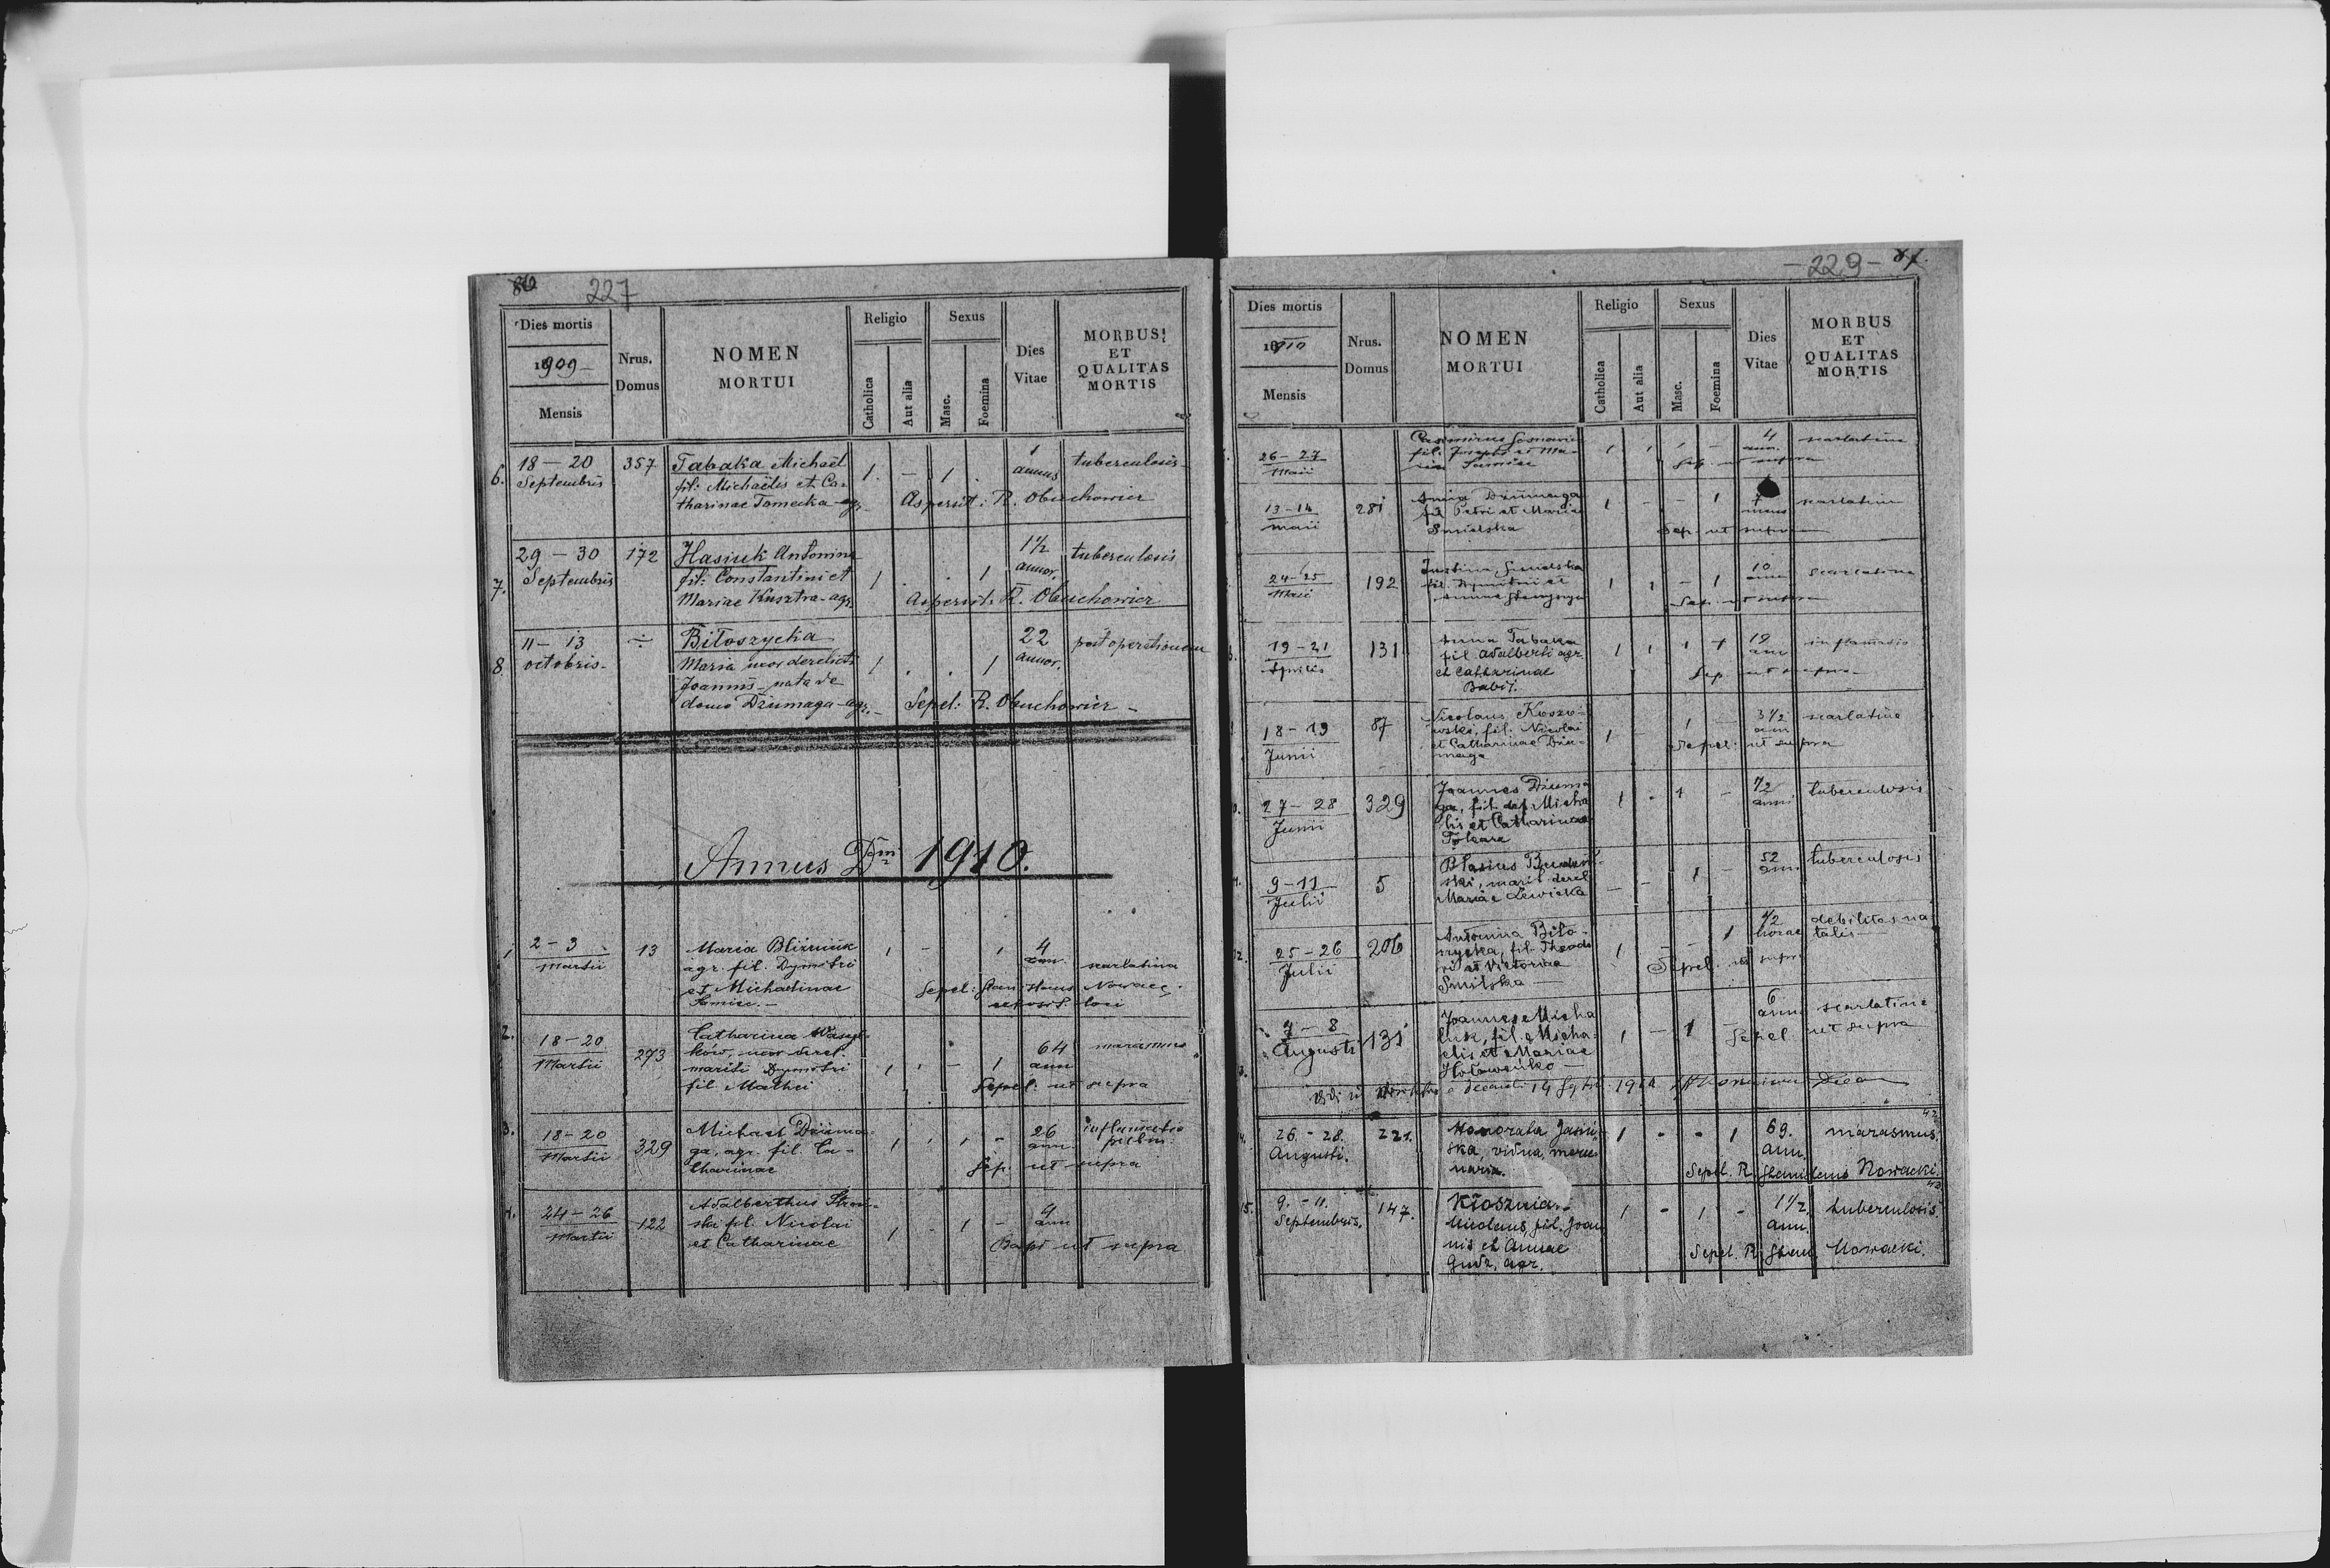 86
227
Dies mortis
1909
Mensis
Nrus. Domus
NOMEN
MORTUI
Religio
Catholica
Aut alia
Sexus
Masc.
Foemina
Dies
Vitae
MORBUS
ET
QUALITAS
MORTIS
6. 18-20 Septembris 357 Tabaka Michaël 1. - 1. 1 annus tuberculosis
fil: Michaëlis et Ca-
tharinae Tomecka - agr. Aspersit: R. Obuchowicz
7. 29-30 Septembris 172 Hasiuk Antonina 1 . . 1 1½ annor. tuberculosis
fil: Constantini et
Mariae Kusztra - agr. Aspersit: R. Obuchowicz
8. 11-13 octobris - ÷ Biłoszycka 1 . . 1 22 annor. post operationem
Maria uxor derelicta
Joannis - nata de
domo Dziumaga - agr. - Sepel: R. Obuchowicz -
Annus Dni 1910.
1 2-3 Martii 13 Maria Bliźniuk 1 - 1 4 ann. scarlatina
agr. fil. Dymitri
et Michalinae
Samiec. - Sepel: Stanislaus Nowacki
exposit. loci
2. 18-20 Martii 273 Catharina 1 - 1 64 ann marasmus
uxor derel.
mariti Dymitri
fil. Mathei Sepel. ut supra
3. 18-20 Martii 329 Michael Dziuma- 1 26 ann inflammatio pulm.
ga, agr. fil. Ca-
tharinae Sep. ut supra
4. 24-26 Martii 122 Adalberthus 1 - 1 - 9 ann
fil. Nicolai
et Catharinae ut supra
-229- 87.
Dies mortis
1910
Mensis
Nrus.
Domus
NOMEN
MORTUI
Religio
Catholica
Aut alia
Sexus
Masc.
Foemina
Dies
Vitae
MORBUS
ET
QUALITAS
MORTIS
26-27 Maii Casimirus 4 ann. scarlatina
fil. Josephi et Ma-
Sep. ut supra
13-14 Maii 281 Ania Dziumaga 1 - - 1 7 scarlatina
fil. Petri et Maria
Smielska Sep. ut supra
24-25 Maii 192 Justina 1 - 1 10 ann scarlatina
fil. Dymitri et
Sep. ut supra
19-21 Aprilis 131 Anna Tabaka 19 ann inflamatio
fil. Adalberti agr.
et Catharinae
Babij. Sep ut supra
18-19 Junii 87 Nicolaus Koszo- 1 - 1 - 3½ ann scarlatina
wski, fil. Nicolai
et Catharinae Dziu-
maga Sepel: ut supra
27-28 Junii 329 Joannes Dziuma- 1 - 1 - ½ anni tuberculosis
ga, fil. def. Micha
lis et Catharinae
Tokara
9-11 Julii 5 Błasius - - 1 - 52 ann tuberculosis
ski, marit. derel.
Mariae Lewicka
12. 25-26 Julii 206 Antonina Biło- 1 - - 1 ½ horae debilitas na-
szycka, fil. Theodo talis
ri et Victoriae
Smilska Sepel. ut supra
7-8 Augusti 131 Joannes Micha 1 - 1 6 ann scarlatina
luk, fil. Micha-
elis et Mariae
Hołowénko - Sepel ut supra
Vidi in decanali 14 1910
26.-28. Augusti. 221. Honorata Jasiń- 1 - - 1 69. ann. marasmus.
ska, vidua, merce
naria. Sepel. R. Stanislaus Nowacki.
15. 9.-11. Septembris. 147. Kłosznia 1 - 1 - 1½. ann. tuberculosis.
Nicolaus, fil. Joan
nis et Annae
Gudz, agr. Sepel. R. Stan. Nowacki.